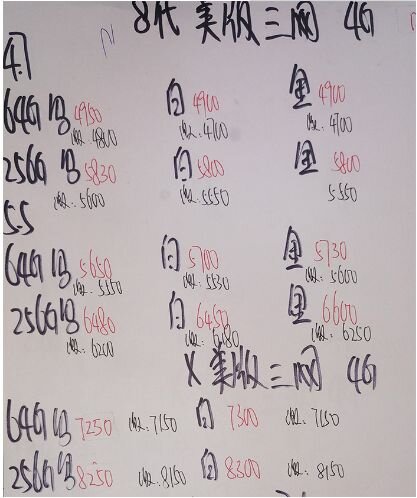 8代 美版三网 4G
4.7
64G黑 4950 白 4900 金 4900
收:4800 收:4700 收:4700
256G黑 5830 白 5800 金 5800
收:5600 收:5550 5550
5.5
64G黑 5650 白 5700 金 5730
收:5550 收:5530 收:5600
256G黑 6480 白 6450 金 6600
收:6200 收:6480 收:6250
X 美版三网 4G
64G黑 7250 收:7150 白 7300 收:7150
256G黑 8250 收:8150 白 8300 收:8150